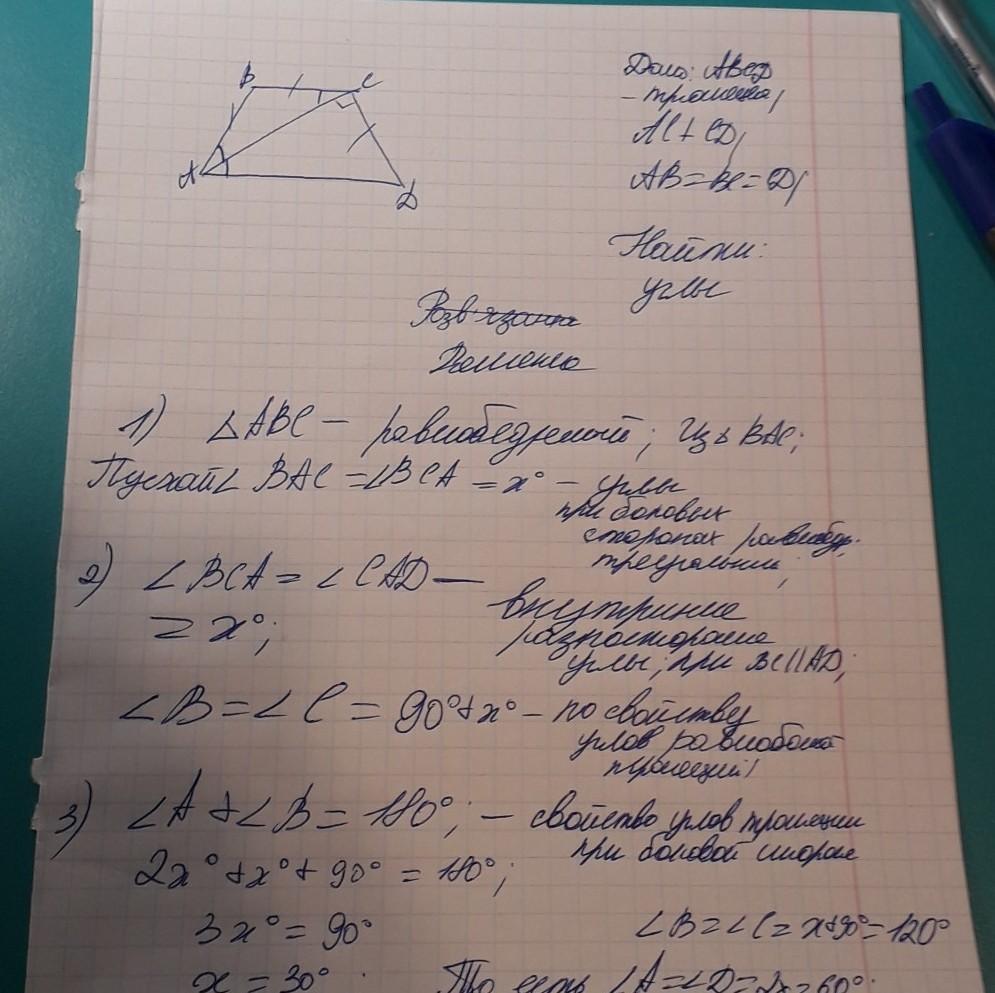 B C
A D
Дано: ABCD
- трапеция,
AC ⊥ CD,
AB = BC = CD,
Найти:
углы
Розв'язання
Решение
1) △ABC - равнобедренный; Из △ BAC;
Пускай ∠BAC = ∠BCA = x° - углы
при боковых
сторонах равнобедр.
треугольник;
2) ∠BCA = ∠CAD —
= x°;
внутрение
разносторонние
углы; при BC||AD;
∠B = ∠C = 90°+x° - по свойству
углов равнобокой
трапеции;
3) ∠A + ∠B = 180°; - свойство углов трапеции
при боковой стороне
2x° + x° + 90° = 180°;
3x° = 90°
∠B = ∠C = x+90° = 120°
x = 30°.
То есть ∠A = ∠D = 2x = 60°.